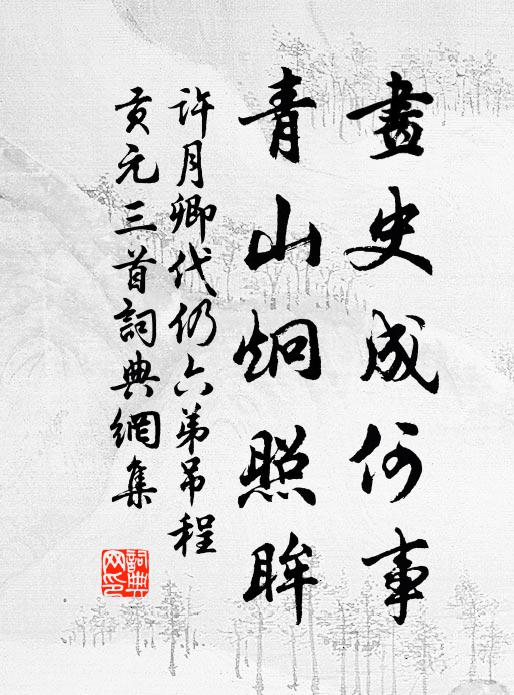 畫史成何事
青山炯照眸
許月卿代仍六弟吊程
貢元三首詞典網集
詞典
网印